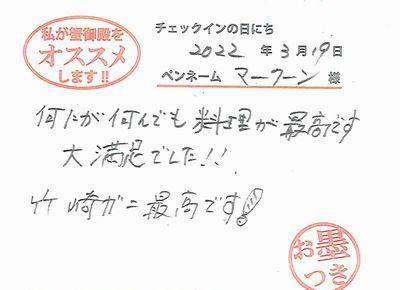 私が蟹御殿を
オススメ
します!!
チェックインの日にち
2022 年 3 月 19 日
ペンネーム マークーン 様
何たが何んでも料理が最高です
大満足でした!!
竹崎ガニ最高です!!
お墨
つき